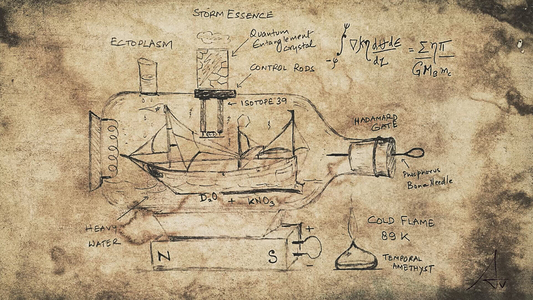 STORM ESSENCE
ECTOPLASM
Quantum
Entanglement
crystal
CONTROL RODS
ISOTOPE 39
HADAMARD
GATE
Phosphorus
Bone Needle
D₂O + KNO₃
HEAVY
WATER
N S
+
COLD FLAME
89 K
TEMPORAL
AMETHYST